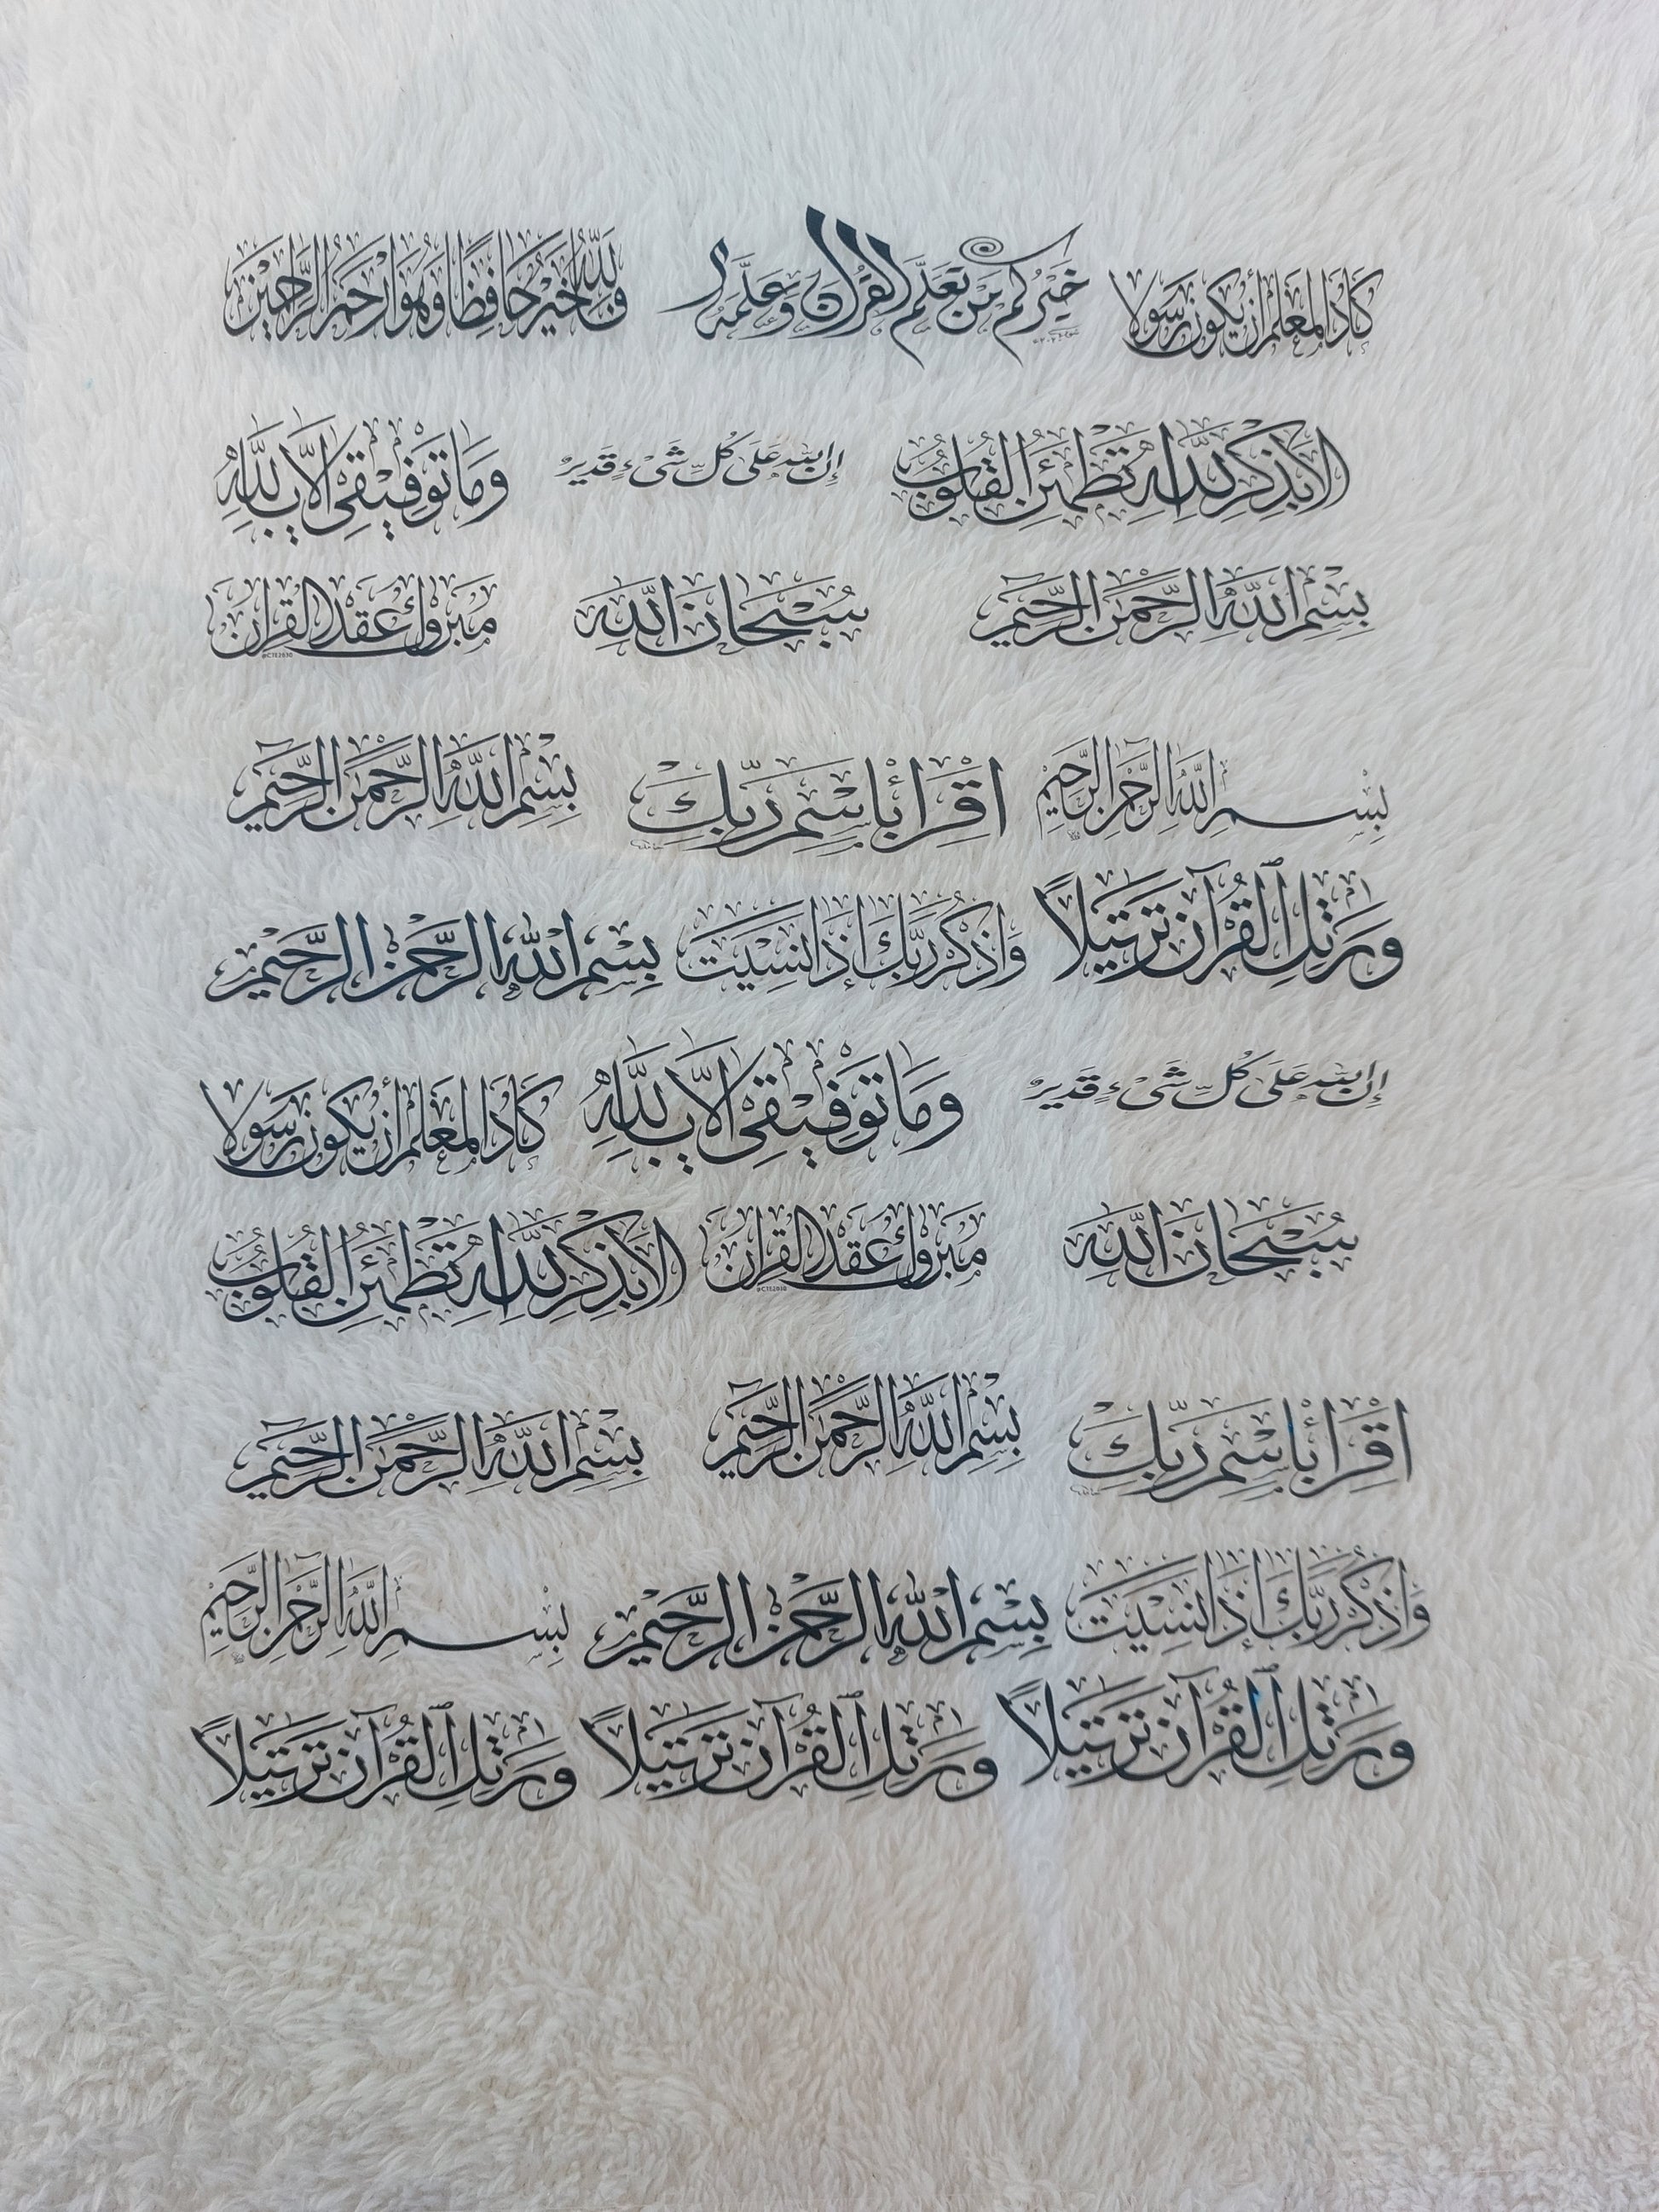 كاد المعلم أن يكون رسولا خيركم من تعلم القرآن وعلمه فالله خير حافظا وهو أرحم الراحمين
ألا بذكر الله تطمئن القلوب إن الله على كل شيء قدير وما توفيقي إلا بالله
بسم الله الرحمن الرحيم سبحان الله مبروك عقد القران
@CTE2030
بسم الله الرحمن الرحيم اقرأ باسم ربك بسم الله الرحمن الرحيم
ورتل القرآن ترتيلاً واذكر ربك إذا نسيت بسم الله الرحمن الرحيم
إن الله على كل شيء قدير وما توفيقي إلا بالله كاد المعلم أن يكون رسولا
سبحان الله مبروك عقد القران ألا بذكر الله تطمئن القلوب
@CTE2030
اقرأ باسم ربك بسم الله الرحمن الرحيم بسم الله الرحمن الرحيم
واذكر ربك إذا نسيت بسم الله الرحمن الرحيم بسم الله الرحمن الرحيم
ورتل القرآن ترتيلاً ورتل القرآن ترتيلاً ورتل القرآن ترتيلاً